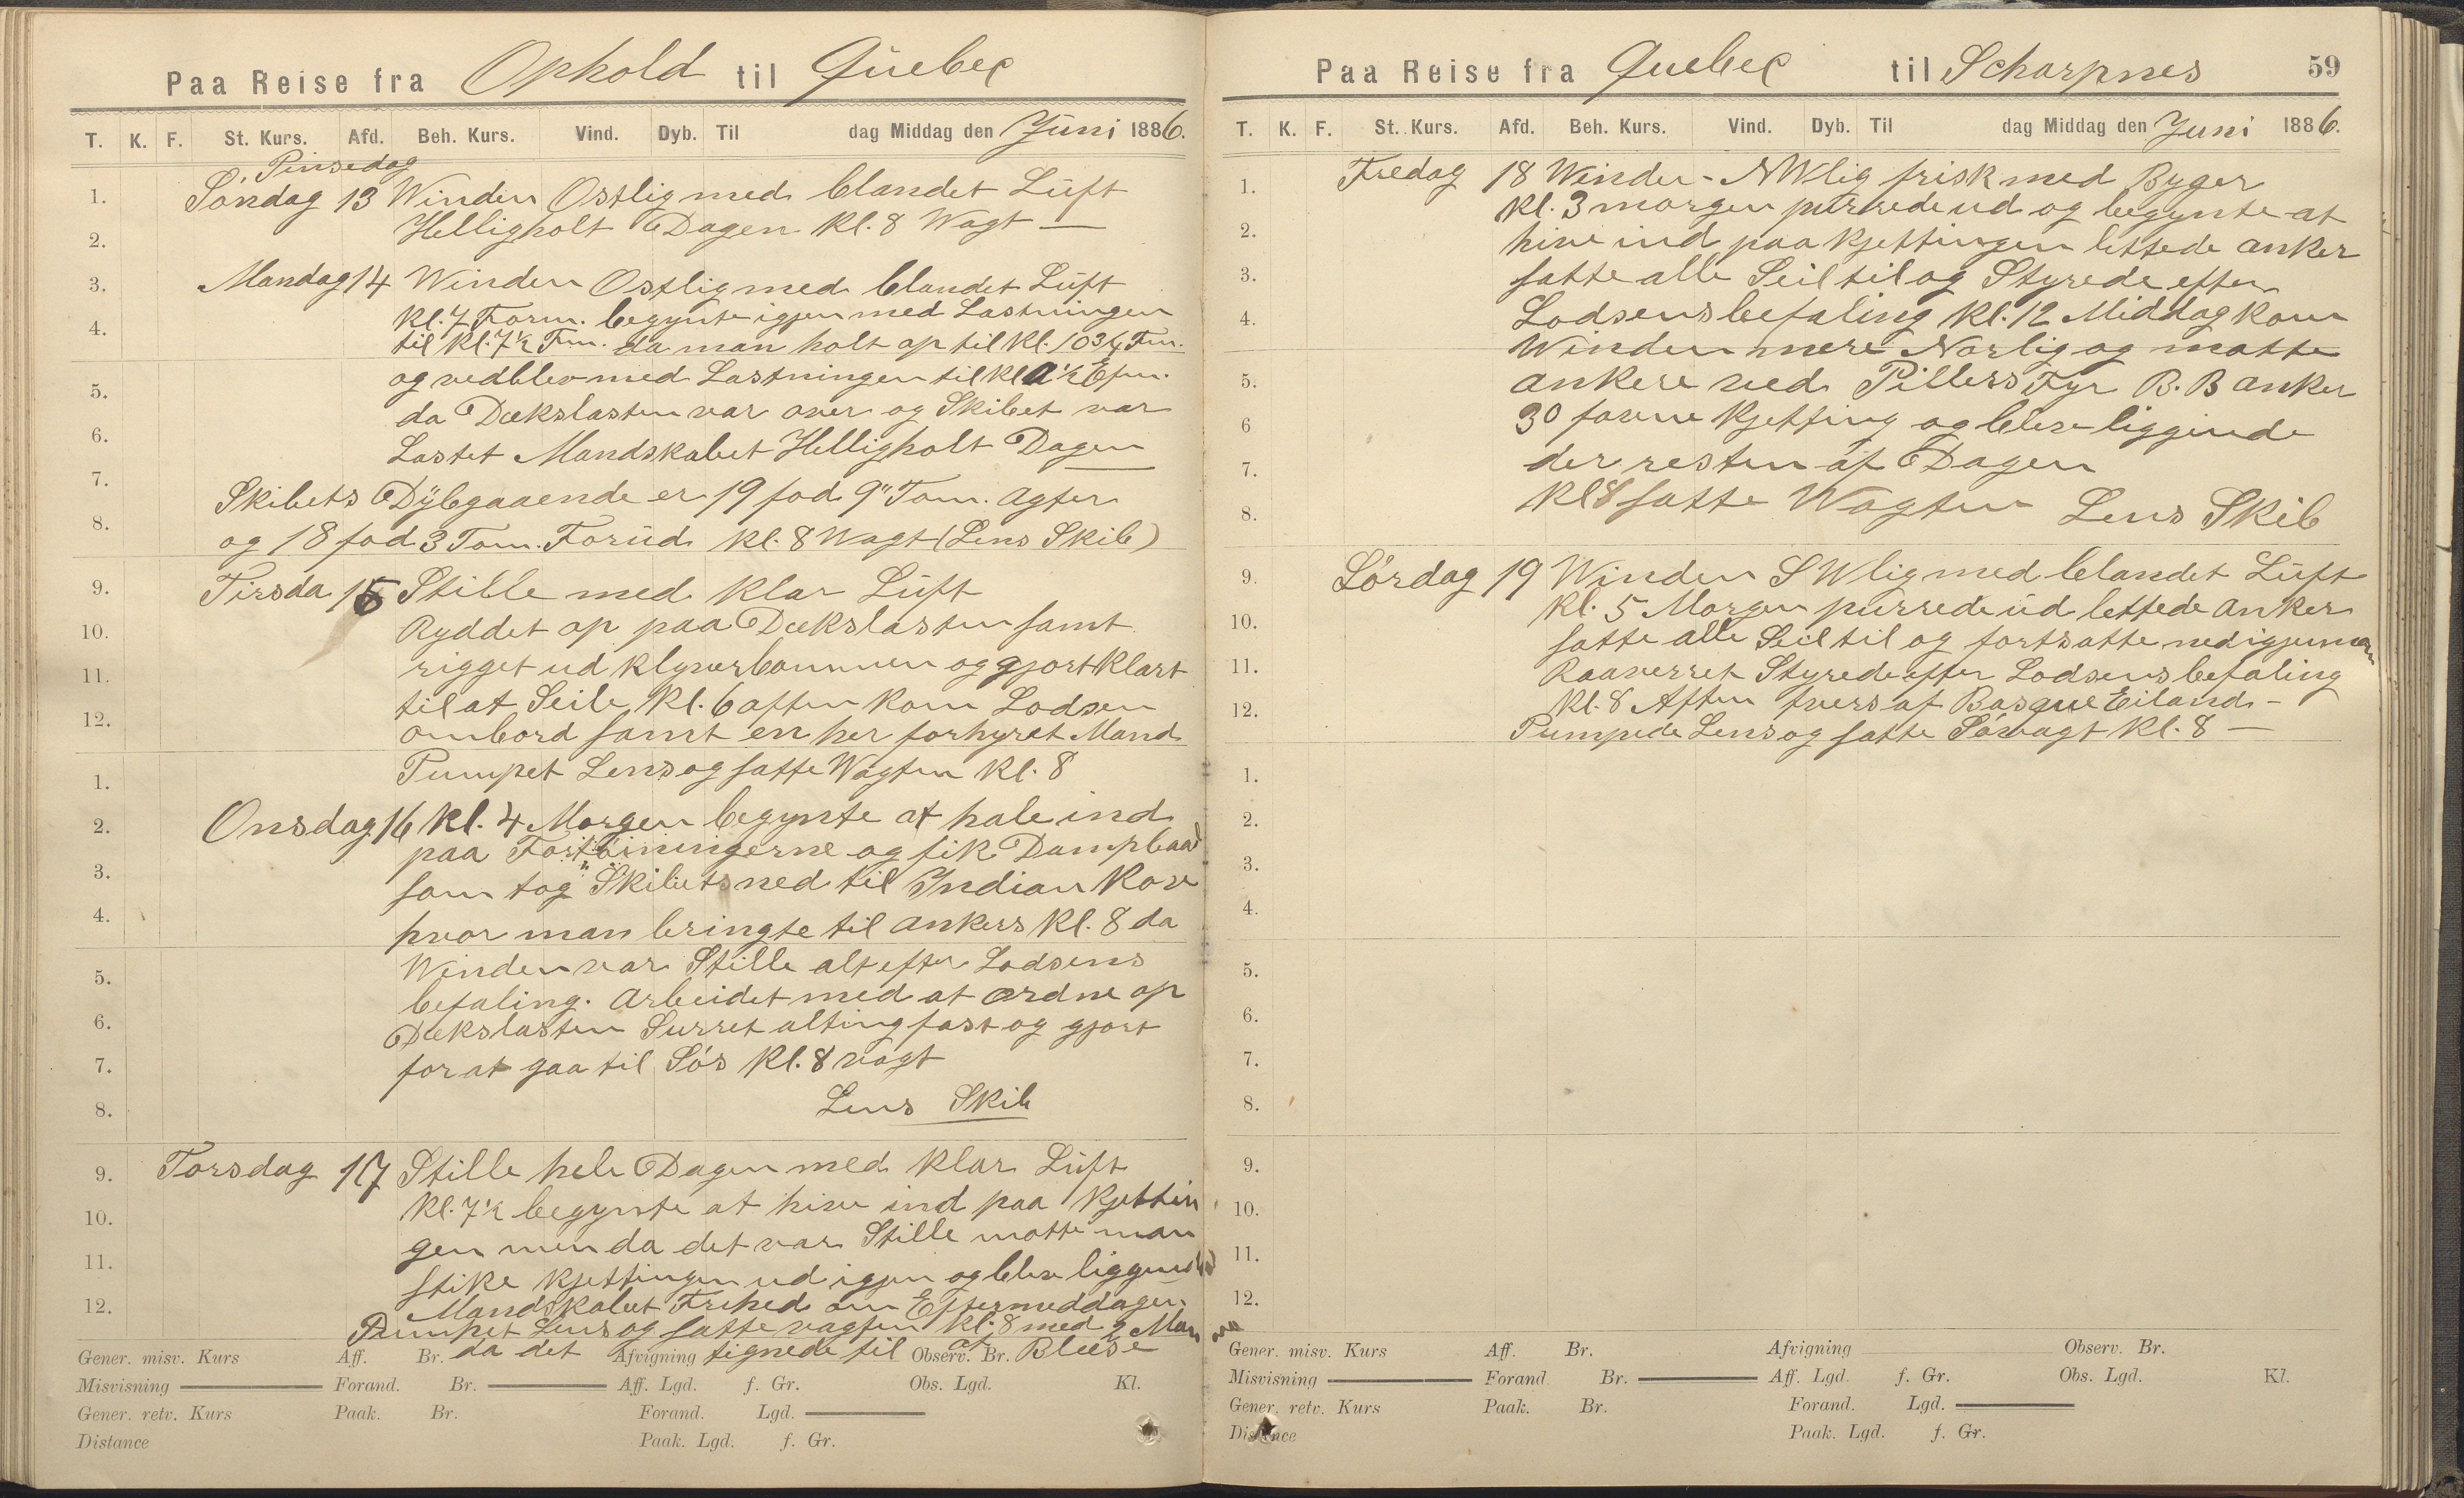 Paa Reise fra Ophold til Quebec
T. K. F. St. Kurs. Afd. Beh. Kurs. Vind. Dyb. Til dag Middag den Juni 1886.
Pinsedag
1. Søndag 13 Winden Ostlig med blandet Luft
2. Helligholt Dagen Kl. 8 Wagt —
3. Mandag 14 Winden Ostlig med blandet Luft
Kl. 7 Form. begynte igjen med Lastningen
4. til Kl. 7½ Fm. da man holt op til Kl. 10¾ Fm.
og vedblev med Lastningen til Kl 1½ Efm.
5. da Dækslasten var over og Skibet var
6. Lastet Mandskabet Helligholt Dagen
7. Skibets Dybgaaende er 19 fod 9" Tom. Agter
8. og 18 fod 3 Tom. Forud Kl. 8 Wagt (Lens Skib)
9. Tirsda 15 Stille med Klar Luft
10. Ryddet op paa Dækslasten samt
11. rigget ud Klyverbommen og gjort Klart
til at Seile Kl. 6 aften Kom Lodsen
12. ombord samt en her forhyret Mand
1. Pumpet Lens og satte Wagten Kl. 8
2. Onsdag 16 Kl. 4 Morgen begynte at hale ind
paa Fortøiningerne og fik Dampbaad
3. som tog Skibets ned til Indian Kov
4. hvor man bringte til ankers Kl. 8 da
Winden var Stille alt efter Lodsens
5. befaling. Arbeidet med at ordne op
6. Dækslasten Surret alting fast og gjort
7. for at gaa til Søs Kl. 8 vagt
8. Lens Skib
9. Torsdag 17 Stille hele Dagen med Klar Luft
Kl. 7½ begynte at hive ind paa Kjettin
10. gen men da det var Stille motte man
11. stike Kjettingen ud igjen og blev liggende
12. Mandskabet Frihed om Eftermeddagen
Pumpet Lens og satte vagten Kl. 8 med 2 Man
da det tignede til at Bleese
Gener. misv. Kurs Aff. Br. Afvigning Observ. Br.
Misvisning Forand. Br. Aff. Lgd. f. Gr. Obs. Lgd. Kl.
Gener. retv. Kurs Paak. Br. Forand. Lgd.
Distance Paak. Lgd. f. Gr.
Paa Reise fra Quebec til Scharpnes 59
T. K. F. St. Kurs. Afd. Beh. Kurs. Vind. Dyb. Til dag Middag den Juni 1886.
1. Fredag 18 Winden - NWlig frisk med Byger
Kl. 3 morgen purrede ud og begynte at
2. hive ind paa Kjettingen lettede anker
3. satte alle Seil til og Styrede efter
4. Lodsens befaling Kl. 12 Middag Kom
Winden mere Norlig og motte
5. ankere ved Pillers Fyr B. B anker
6 30 favne Kjetting og blev liggende
7. der resten af Dagen
8. Kl 8 satte Wagten Lens Skib
9. Lørdag 19 Winden SWlig med blandet Luft
Kl. 5 Morgen purrede ud lettede anker
10. satte alle Seil til og fortsatte ned igjennem
11. Raaverret Styrede efter Lodsens befaling
Kl. 8 Aften tvers af Basque Eiland -
12. Pumpede Lens og satte Søvagt Kl. 8 —
1.
2.
3.
4.
5.
6.
7.
8.
9.
10.
11.
12.
Gener. misv. Kurs Aff. Br. Afvigning Observ. Br.
Misvisning Forand. Br. Aff. Lgd. f. Gr. Obs. Lgd. Kl.
Gener. retv. Kurs Paak. Br. Forand. Lgd.
Distance Paak. Lgd. f. Gr.